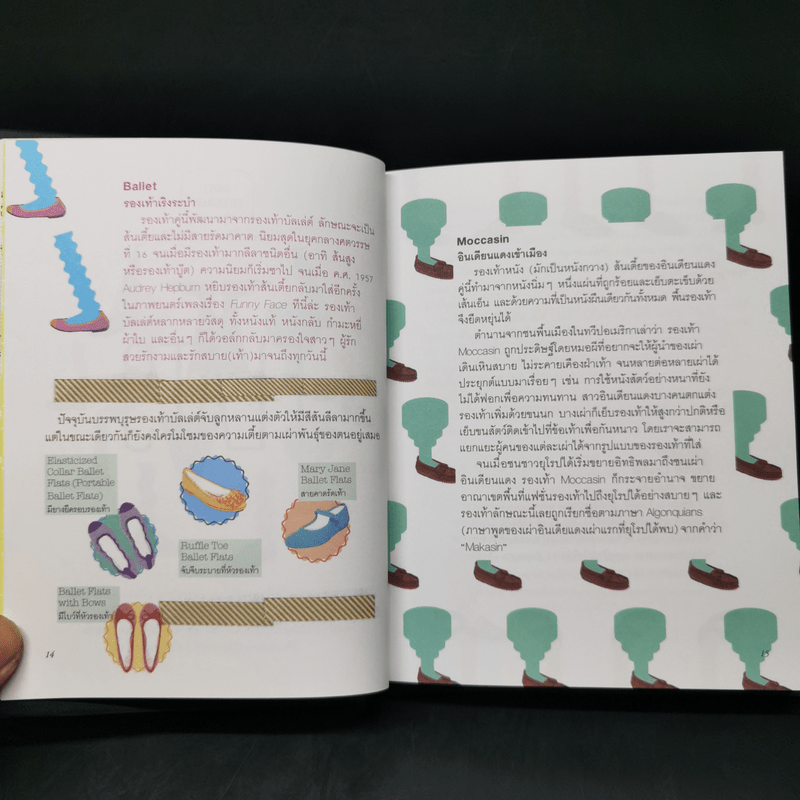 Ballet
รองเท้าเชิงระบำ
รองเท้าคู่นี้พัฒนามาจากรองเท้าบัลเล่ต์ ลักษณะจะเป็น
ส้นเตี้ยและไม่มีสายรัดมาคาด นิยมสุดในยุคกลางศตวรรษ
ที่ 16 จนเมื่อมีรองเท้ามากลีลาชนิดอื่น (อาทิ ส้นสูง
หรือรองเท้าบู๊ต) ความนิยมก็เริ่มซาไป จนเมื่อ ค.ศ. 1957
Audrey Hepburn หยิบรองเท้าส้นเตี้ยกลับมาใส่อีกครั้ง
ในภาพยนตร์เพลงเรื่อง Funny Face ทีนี้ล่ะ รองเท้า
บัลเล่ต์หลากหลายวัสดุ ทั้งหนังแท้ หนังกลับ กำมะหยี่
ผ้าใบ และอื่นๆ ก็ได้วอล์กกลับมาครองใจสาวๆ ผู้รัก
สวยรักงามและรักสบาย(เท้า)มาจนถึงทุกวันนี้
ปัจจุบันบรรพบุรุษรองเท้าบัลเล่ต์จับลูกหลานแต่งตัวให้มีสีสันลีลามากขึ้น
แต่ในขณะเดียวกันก็ยังคงโครโมโซมของความเตี้ยตามเผ่าพันธุ์ของตนอยู่เสมอ
Elasticized
Collar Ballet
Flats (Portable
Ballet Flats)
มียางยืดรอบรองเท้า
Mary Jane
Ballet Flats
สายคาดรัดเท้า
Ruffle Toe
Ballet Flats
จับจีบระบายที่หัวรองเท้า
Ballet Flats
with Bows
มีโบว์ที่หัวรองเท้า
14
Moccasin
อินเดียนแดงเข้าเมือง
รองเท้าหนัง (มักเป็นหนังกวาง) ส้นเตี้ยของอินเดียนแดง
คู่นี้ทำมาจากหนังนิ่มๆ หนึ่งแผ่นที่ถูกร้อยและเย็บตะเข็บด้วย
เส้นเอ็น และด้วยความที่เป็นหนังผืนเดียวกันทั้งหมด พื้นรองเท้า
จึงยืดหยุ่นได้
ตำนานจากชนพื้นเมืองในทวีปอเมริกาเล่าว่า รองเท้า
Moccasin ถูกประดิษฐ์โดยหมอผีที่อยากจะให้ผู้นำของเผ่า
เดินเหินสบาย ไม่ระคายเคืองฝ่าเท้า จนหลายต่อหลายเผ่าได้
ประยุกต์แบบมาเรื่อยๆ เช่น การใช้หนังสัตว์อย่างหนาที่ยัง
ไม่ได้ฟอกเพื่อความทนทาน สาวอินเดียนแดงบางคนตกแต่ง
รองเท้าเพิ่มด้วยขนนก บางเผ่าก็เย็บรองเท้าให้สูงกว่าปกติหรือ
เย็บขนสัตว์ติดเข้าไปที่ข้อเท้าเพื่อกันหนาว โดยเราจะสามารถ
แยกแยะผู้คนของแต่ละเผ่าได้จากรูปแบบของรองเท้าที่ใส่
จนเมื่อชนชาวยุโรปได้เริ่มขยายอิทธิพลมาถึงชนเผ่า
อินเดียนแดง รองเท้า Moccasin ก็กระจายอำนาจ ขยาย
อาณาเขตพื้นที่แฟชั่นรองเท้าไปถึงยุโรปได้อย่างสบายๆ และ
รองเท้าลักษณะนี้เลยถูกเรียกชื่อตามภาษา Algonquians
(ภาษาพูดของเผ่าอินเดียแดงเผ่าแรกที่ยุโรปได้พบ) จากคำว่า
"Makasin"
15